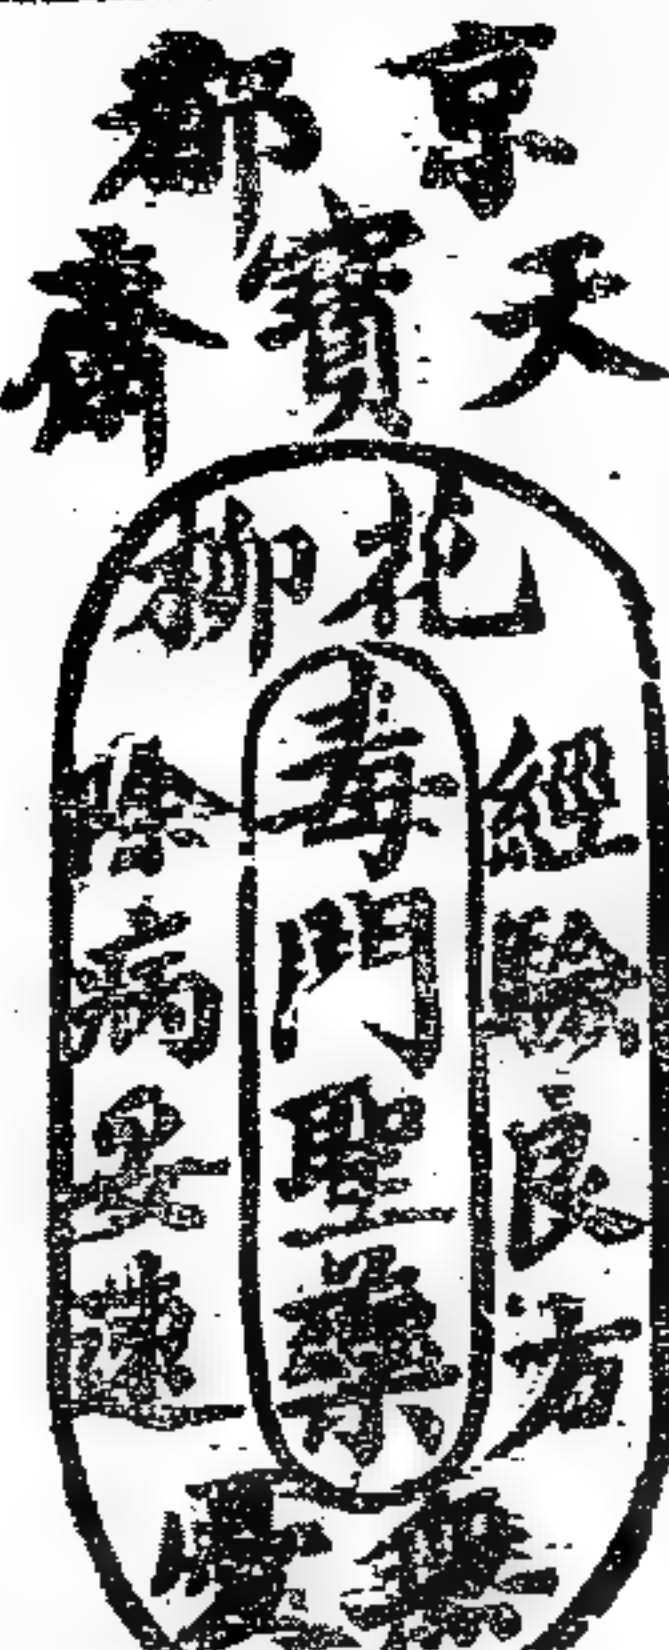 京都
天寶齋
花柳
毒門聖藥
經驗良方
除病最速
無